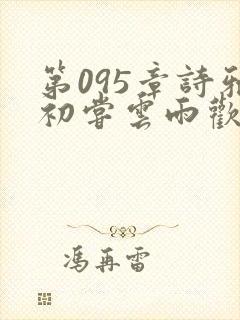 第095章詩雅
初嘗雲雨歡
馮再雷